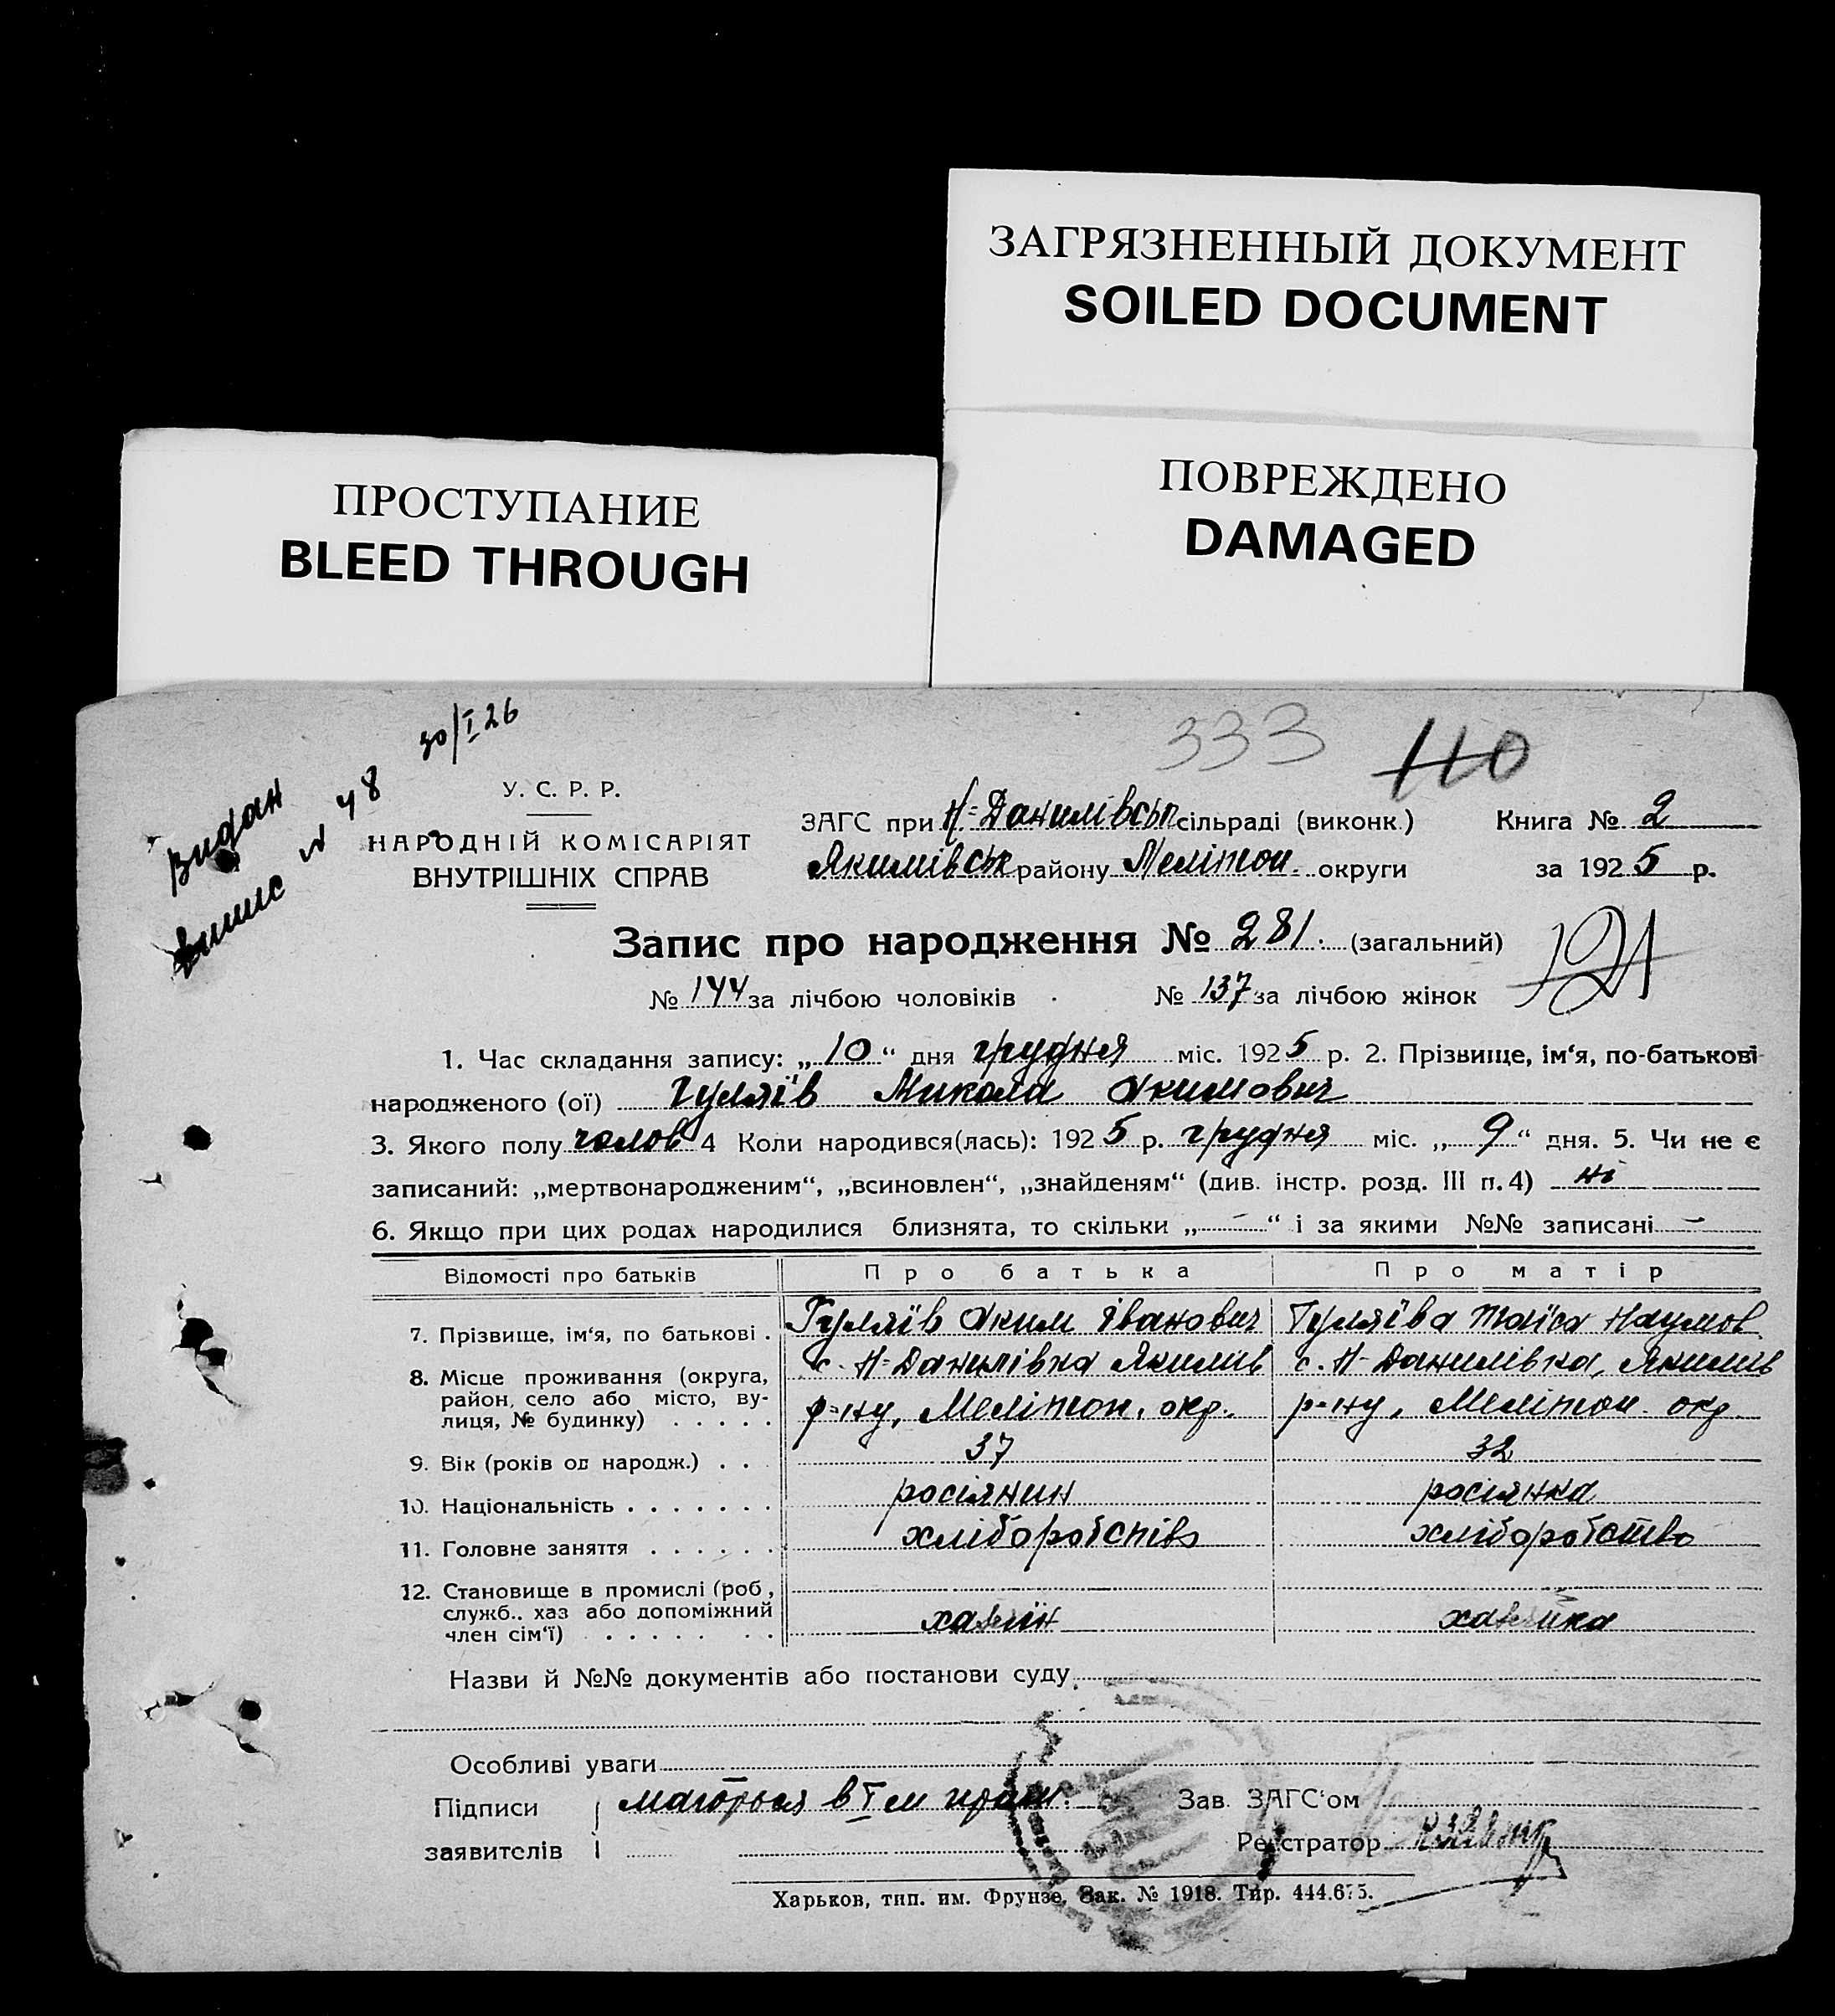 ЗАГРЯЗНЕННЫЙ ДОКУМЕНТ
SOILED DOCUMENT
ПРОСТУПАНИЕ
BLEED THROUGH
ПОВРЕЖДЕНО
DAMAGED
30/I 26
333 110
Видан
випис № 48
У. С. Р. Р.
НАРОДНІЙ КОМІСАРІЯТ
ВНУТРІШНІХ СПРАВ
ЗАГС при Н-Данилівськ сільраді (виконк.) Книга № 2
Якимівськ району Мелітоп. округи за 1925 р.
Запис про народження № 281. (загальний) 121
№ 144 за лічбою чоловіків № 137 за лічбою жінок
1. Час складання запису: „10“ дня грудня міс. 1925 р. 2. Прізвище, ім‘я, по-батькові
народженого (ої) Гуляїв Микола Якимович
3. Якого полу чолов 4 Коли народився(лась): 1925 р. грудня міс. „9“ дня. 5. Чи не є
записаний: „мертвонародженим“, „всиновлен“, „знайденям“ (див. інстр. розд. III п. 4) ні
6. Якщо при цих родах народилися близнята, то скільки „-“ і за якими №№ записані -
Відомості про батьків Про батька Про матір
7. Прізвище, ім‘я, по батькові . Гуляїв Яким Іванович Гуляїва Таїса Наумов
8. Місце проживання (округа, район, село або місто, вулиця, № будинку) . . . . .
с. Н-Данилівка Якимів с. Н-Данилівка, Якимів
р-ну, Мелітоп. окр. р-ну, Мелітоп. окр.
9. Вік (років од народж.) . . . 37 32
10. Національність . . . . . . . росіянин росіянка
11. Головне заняття . . . . . . хліборобств хліборобство
12. Становище в промислі (роб., служб.. хаз або допоміжний член сім‘ї) . . . . . . . хазяїн хазяйка
Назви й №№ документів або постанови суду
Особливі уваги
Підписи в I ем Зав. ЗАГС‘ом
заявителів Реєстратор
Харьков, тип. им. Фрунзе. Зак. № 1918. Тир. 444.675.